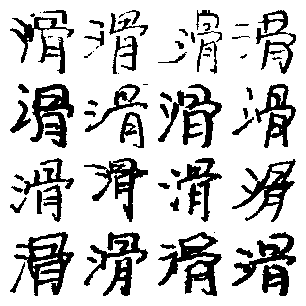 滑滑滑滑
滑滑滑滑
滑滑滑滑
滑滑滑滑